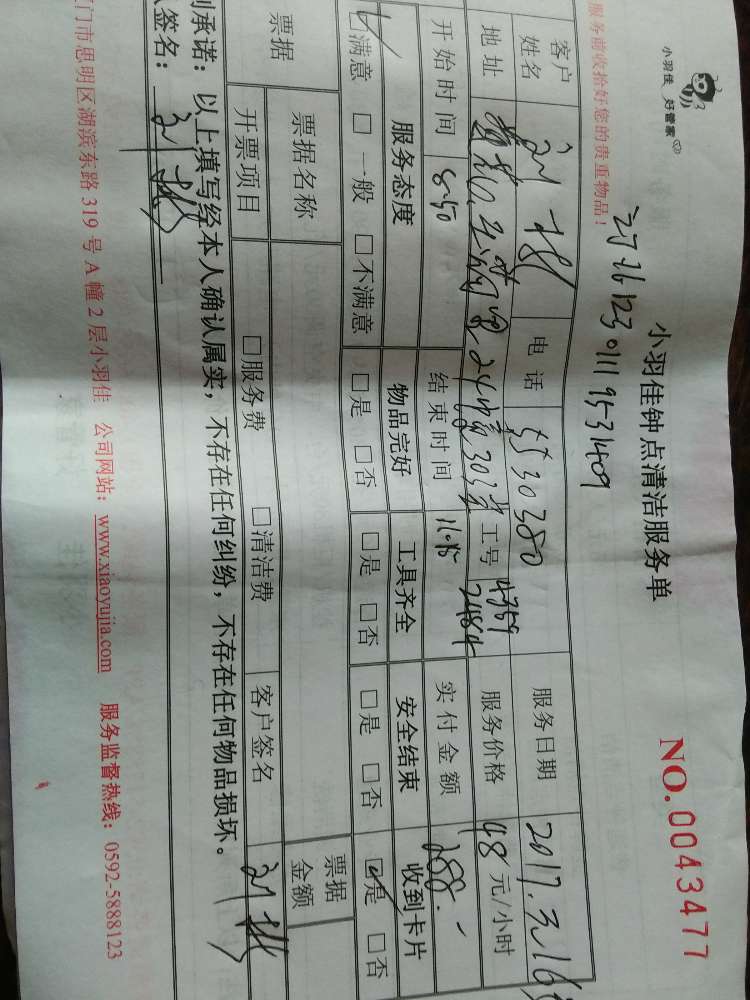 小羽佳 好管家
小羽佳钟点清洁服务单
NO.0043477
服务前收拾好您的贵重物品!
客户姓名 电话 5530380 服务日期 2017.3.16
地址 24 303 工号 4359 2484 服务价格 48 元/小时
开始时间 8:50 结束时间 11:45 实付金额 288.-
服务态度 物品完好 工具齐全 安全结束 收到卡片
☑满意 □一般 □不满意 □是 □否 □是 □否 □是 □否 ☑是 □否
票据 票据名称 票据金额
开票项目 □服务费 □清洁费 客户签名
承诺:以上填写经本人确认属实,不存在任何纠纷,不存在任何物品损坏。
签名:
门市思明区湖滨东路 319 号 A 幢 2 层小羽佳 公司网站:www.xiaoyujia.com 服务监督热线:0592-5888123